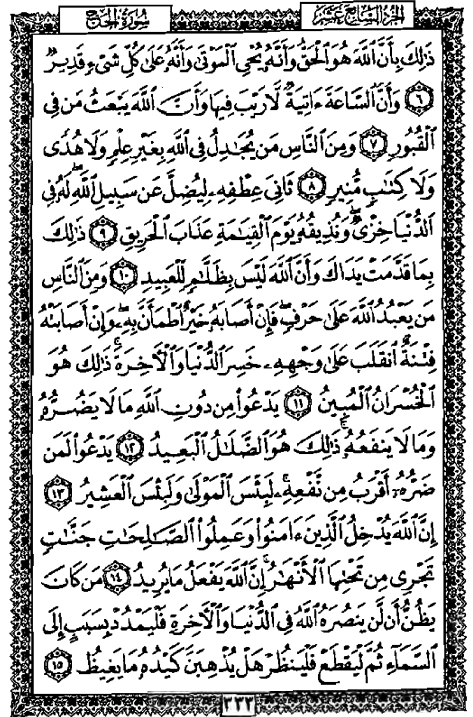 سُورَةُ الحَجّ
الجُزءُ السَّابِعَ عَشَرَ
ذَٰلِكَ بِأَنَّ ٱللَّهَ هُوَ ٱلْحَقُّ وَأَنَّهُۥ يُحْىِ ٱلْمَوْتَىٰ وَأَنَّهُۥ عَلَىٰ كُلِّ شَىْءٍ قَدِيرٌ
٦ وَأَنَّ ٱلسَّاعَةَ ءَاتِيَةٌ لَّا رَيْبَ فِيهَا وَأَنَّ ٱللَّهَ يَبْعَثُ مَن فِى
ٱلْقُبُورِ ٧ وَمِنَ ٱلنَّاسِ مَن يُجَٰدِلُ فِى ٱللَّهِ بِغَيْرِ عِلْمٍ وَلَا هُدًى
وَلَا كِتَٰبٍ مُّنِيرٍ ٨ ثَانِىَ عِطْفِهِۦ لِيُضِلَّ عَن سَبِيلِ ٱللَّهِ ۖ لَهُۥ فِى
ٱلدُّنْيَا خِزْىٌ ۖ وَنُذِيقُهُۥ يَوْمَ ٱلْقِيَٰمَةِ عَذَابَ ٱلْحَرِيقِ ٩ ذَٰلِكَ
بِمَا قَدَّمَتْ يَدَاكَ وَأَنَّ ٱللَّهَ لَيْسَ بِظَلَّٰمٍ لِّلْعَبِيدِ ١٠ وَمِنَ ٱلنَّاسِ
مَن يَعْبُدُ ٱللَّهَ عَلَىٰ حَرْفٍ ۖ فَإِنْ أَصَابَهُۥ خَيْرٌ ٱطْمَأَنَّ بِهِۦ ۖ وَإِنْ أَصَابَتْهُ
فِتْنَةٌ ٱنقَلَبَ عَلَىٰ وَجْهِهِۦ خَسِرَ ٱلدُّنْيَا وَٱلْـَٔاخِرَةَ ۚ ذَٰلِكَ هُوَ
ٱلْخُسْرَانُ ٱلْمُبِينُ ١١ يَدْعُوا۟ مِن دُونِ ٱللَّهِ مَا لَا يَضُرُّهُۥ
وَمَا لَا يَنفَعُهُۥ ۚ ذَٰلِكَ هُوَ ٱلضَّلَٰلُ ٱلْبَعِيدُ ١٢ يَدْعُوا۟ لَمَن
ضَرُّهُۥٓ أَقْرَبُ مِن نَّفْعِهِۦ ۚ لَبِئْسَ ٱلْمَوْلَىٰ وَلَبِئْسَ ٱلْعَشِيرُ ١٣
إِنَّ ٱللَّهَ يُدْخِلُ ٱلَّذِينَ ءَامَنُوا۟ وَعَمِلُوا۟ ٱلصَّٰلِحَٰتِ جَنَّٰتٍ
تَجْرِى مِن تَحْتِهَا ٱلْأَنْهَٰرُ ۚ إِنَّ ٱللَّهَ يَفْعَلُ مَا يُرِيدُ ١٤ مَن كَانَ
يَظُنُّ أَن لَّن يَنصُرَهُ ٱللَّهُ فِى ٱلدُّنْيَا وَٱلْـَٔاخِرَةِ فَلْيَمْدُدْ بِسَبَبٍ إِلَى
ٱلسَّمَآءِ ثُمَّ لْيَقْطَعْ فَلْيَنظُرْ هَلْ يُذْهِبَنَّ كَيْدُهُۥ مَا يَغِيظُ ١٥
٣٣٣